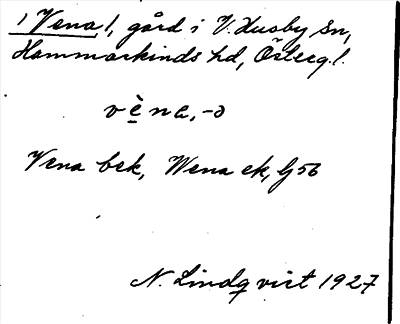 / Vena /, gård i V. Husby sn,
Hammarkinds hd, Österg. l.
vè̱na, -ə
Vena bek, Wena ek, G 56
N. Lindqvist 1927